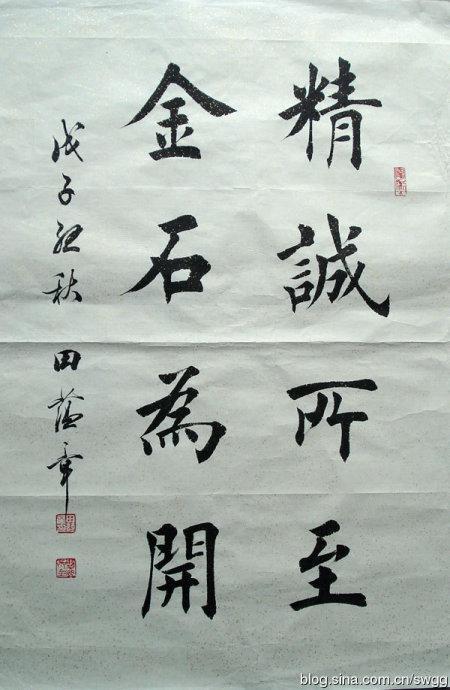 精誠所至
金石為開
戊子秋 田蘊章
blog.sina.com.cn/swgg